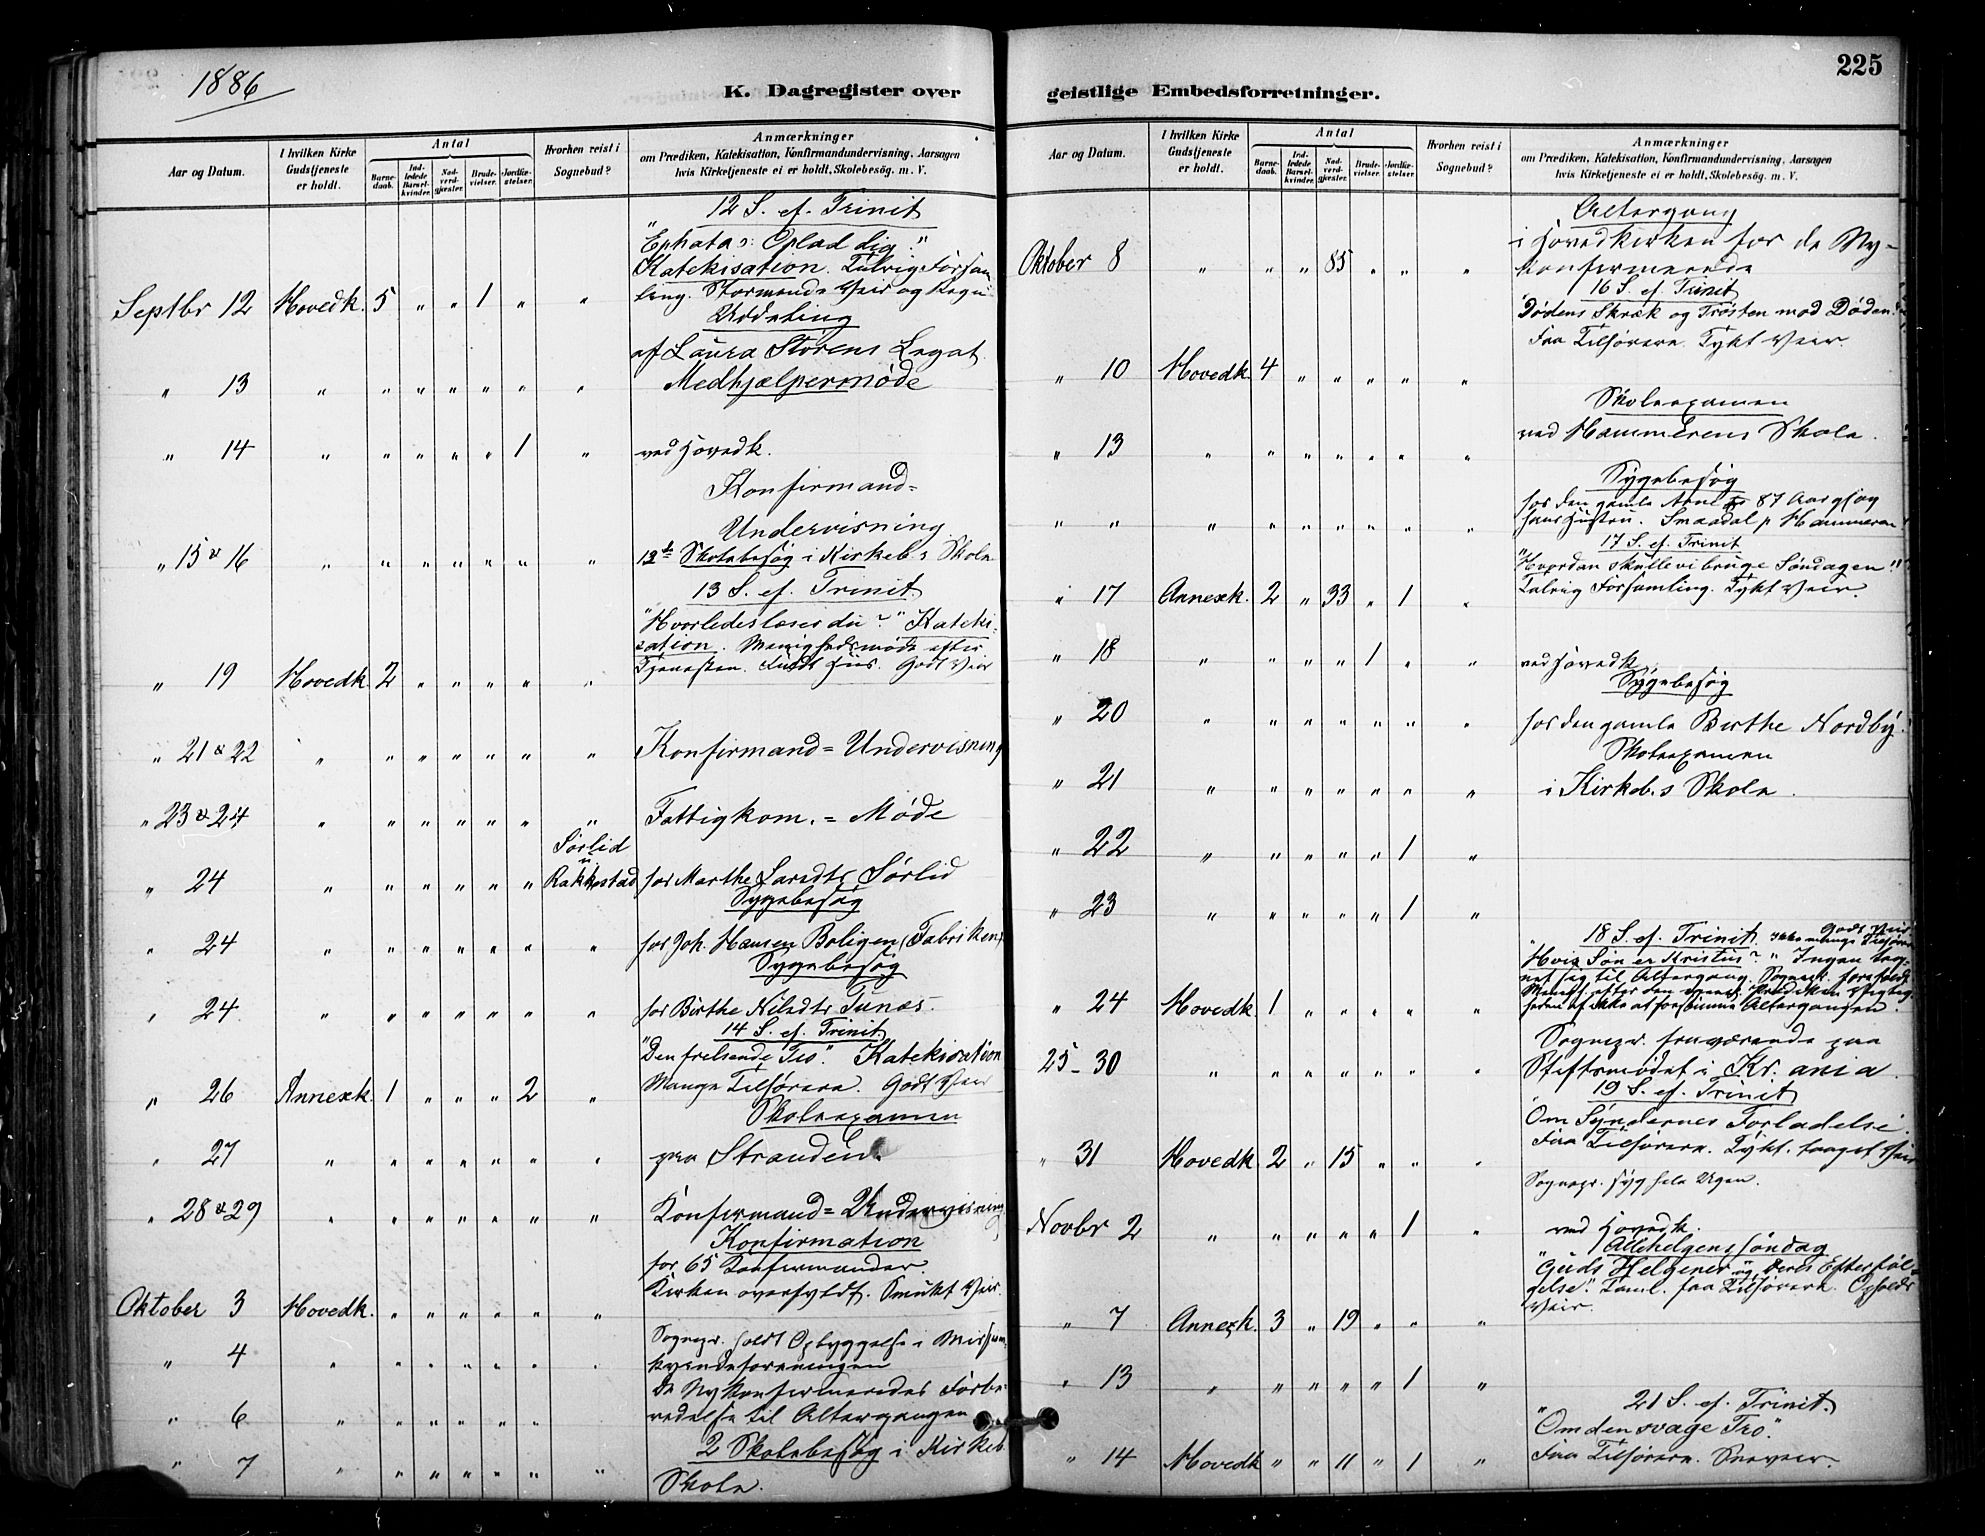 1886
K. Dagregister over
Aar og Datum.
I hvilken Kirke Gudstjeneste er holdt.
Antal
Barne-daab.
Ind-ledede Barsel-kvinder.
Nad-verd-gjæster.
Brude-vielser.
Jordfæ-stelser.
Hvorhen reist i Sognebud?
Anmærkninger
om Prædiken, Katekisation, Konfirmandundervisning, Aarsagen
hvis Kirketjeneste ei er holdt, Skolebesøg. m. V.
12 S. ef. Trinit
"Ephata : Oplad dig."
Katekisation. Talrig Forsam
Septbr 12 Hovedk. 5 " " 1 " " ling. Stormende Veir og Regn
Uddeling
af Laura Størens Legat.
" 13 " " " " " " " Medhjælpermøde
" 14 " " " " " 1 " ved Hovedk.
Konfirmand=
Undervisning
" 15 & 16 " " " " " " " Skolebesøg i Kirkeb.s Skole
13 S. ef. Trinit.
"Hvorledes læser du?" Kateki-
sation. Menighedsmøde efter
" 19 Hovedk. 2 " " " " " Tjenesten. Fuldt Huus. Godt Veir
" 21 & 22 " " " " " " " Konfirmand = Undervisning
" 23 & 24 " " " " " " " Fattigkom. = Møde
Sørlid
i
" 24 " " " " " " Rakkestad hos Marthe Larsdtr Sørlid
Sygebesøg
" 24 " " " " " " " hos Joh. Hansen Boligen (Fabriken)
Sygebesøg
" 24. " " " " " " " hos Birthe Nilsdtr Tunæs.
14 S. ef. Trinit.
"Den frelsende Tro." Katekisation
" 26 Annexk. 1 " " " 2 " Mange Tilhørere. Godt Veir
Skoleexamen
" 27 " " " " " " " paa Stranden.
" 28 & 29 " " " " " " " Konfirmand = Undervisning
Konfirmation
for 65 Konfirmander.
Oktober 3 Hovedk. " " " " " " Kirken overfyldt. Smukt Veir.
Sognepr. holdt Opbyggelse i Mission
" 4 " " " " " " " kvindeforeningen
De Nykonfirmeredes Forbe-
" 6 " " " " " " redelse til Altergangen
2 Skolebesøg i Kirkeb.
" 7 " " " " " " " Skole.
225
geistlige Embedsforretninger.
Aar og Datum.
I hvilken Kirke Gudstjeneste er holdt.
Antal
Barne-daab.
Ind-ledede Barsel-kvinder.
Nad-verd-gjæster.
Brude-vielser.
Jordfæ-stelser.
Hvorhen reist i Sognebud?
Anmærkninger
om Prædiken, Katekisation, Konfirmandundervisning, Aarsagen
hvis Kirketjeneste ei er holdt, Skolebesøg. m. V.
Altergang
i Hovedkirken for de Ny-
Oktober 8 " " " 85 " " " konfirmerede
16 S. ef. Trinit
"Dødens Skræk og Trøsten mod Døden."
Faa Tilhørere. Tykt Veir.
" 10 Hovedk 4 " " " " "
Skoleexamen
ved Hammerens Skole.
" 13 " " " " " " "
Sygebesøg
hos den gamle Arne 87 Aar
" " " " " " " " " Smaadal p Hammeren
17 S. ef. Trinit
"Hvordan skulle vi bruge Søndagen."
" 17 Annexk. 2 " 33 " 1 " Talrig Forsamling. Tykt Veir.
" 18 " " " " 1 " " ved Hovedk
Sygebesøg
" 20 " " " " " " " hos den gamle Birthe Nordby.
Skoleexamen
" 21 " " " " " " " i Kirkeb.s Skole.
" 22 " " " " " 1 "
" 23 " " " " " 1 "
18 S. ef. Trinit. Godt Veir
Ikke mange Tilhører
"Hvis Søn er Kristus?" Ingen teg-
net sig til Altergang. Sognepr. foreholdt
Menigh. efter den Prædiken Vigtig-
" 24 Hovedk. 1 " " " " " heden af ikke at forsømme Altergangen.
Sognepr. fraværende paa
25-30 " " " " " " " Stiftsmødet i Kr.ania.
19 S. ef. Trinit
"Om Syndernes Forladelse."
" 31 Hovedk. 2 " 15 " " " Faa Tilhørere. Tykt, taaget Veir
Sognepr. syg hele Ugen.
Novbr 2 " " " " " 1 " ved Hovedk.
Allehelgenssøndag
"Guds Helgener og deres Efterføl-
gelse." Faa Tilhørere. Opholds
" 7 Annexk. 3 " 19 " " " Veir.
" 13 " " " " " 1 "
21 S. ef. Trinit.
"Om den svage Tro."
" 14 Hovedk " " 11 " 1 " Faa Tilhørere. Sneveir.